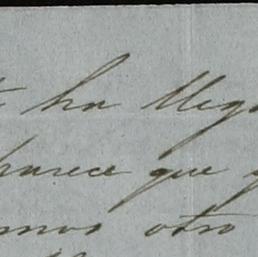 ha llega
parece que
mos otro